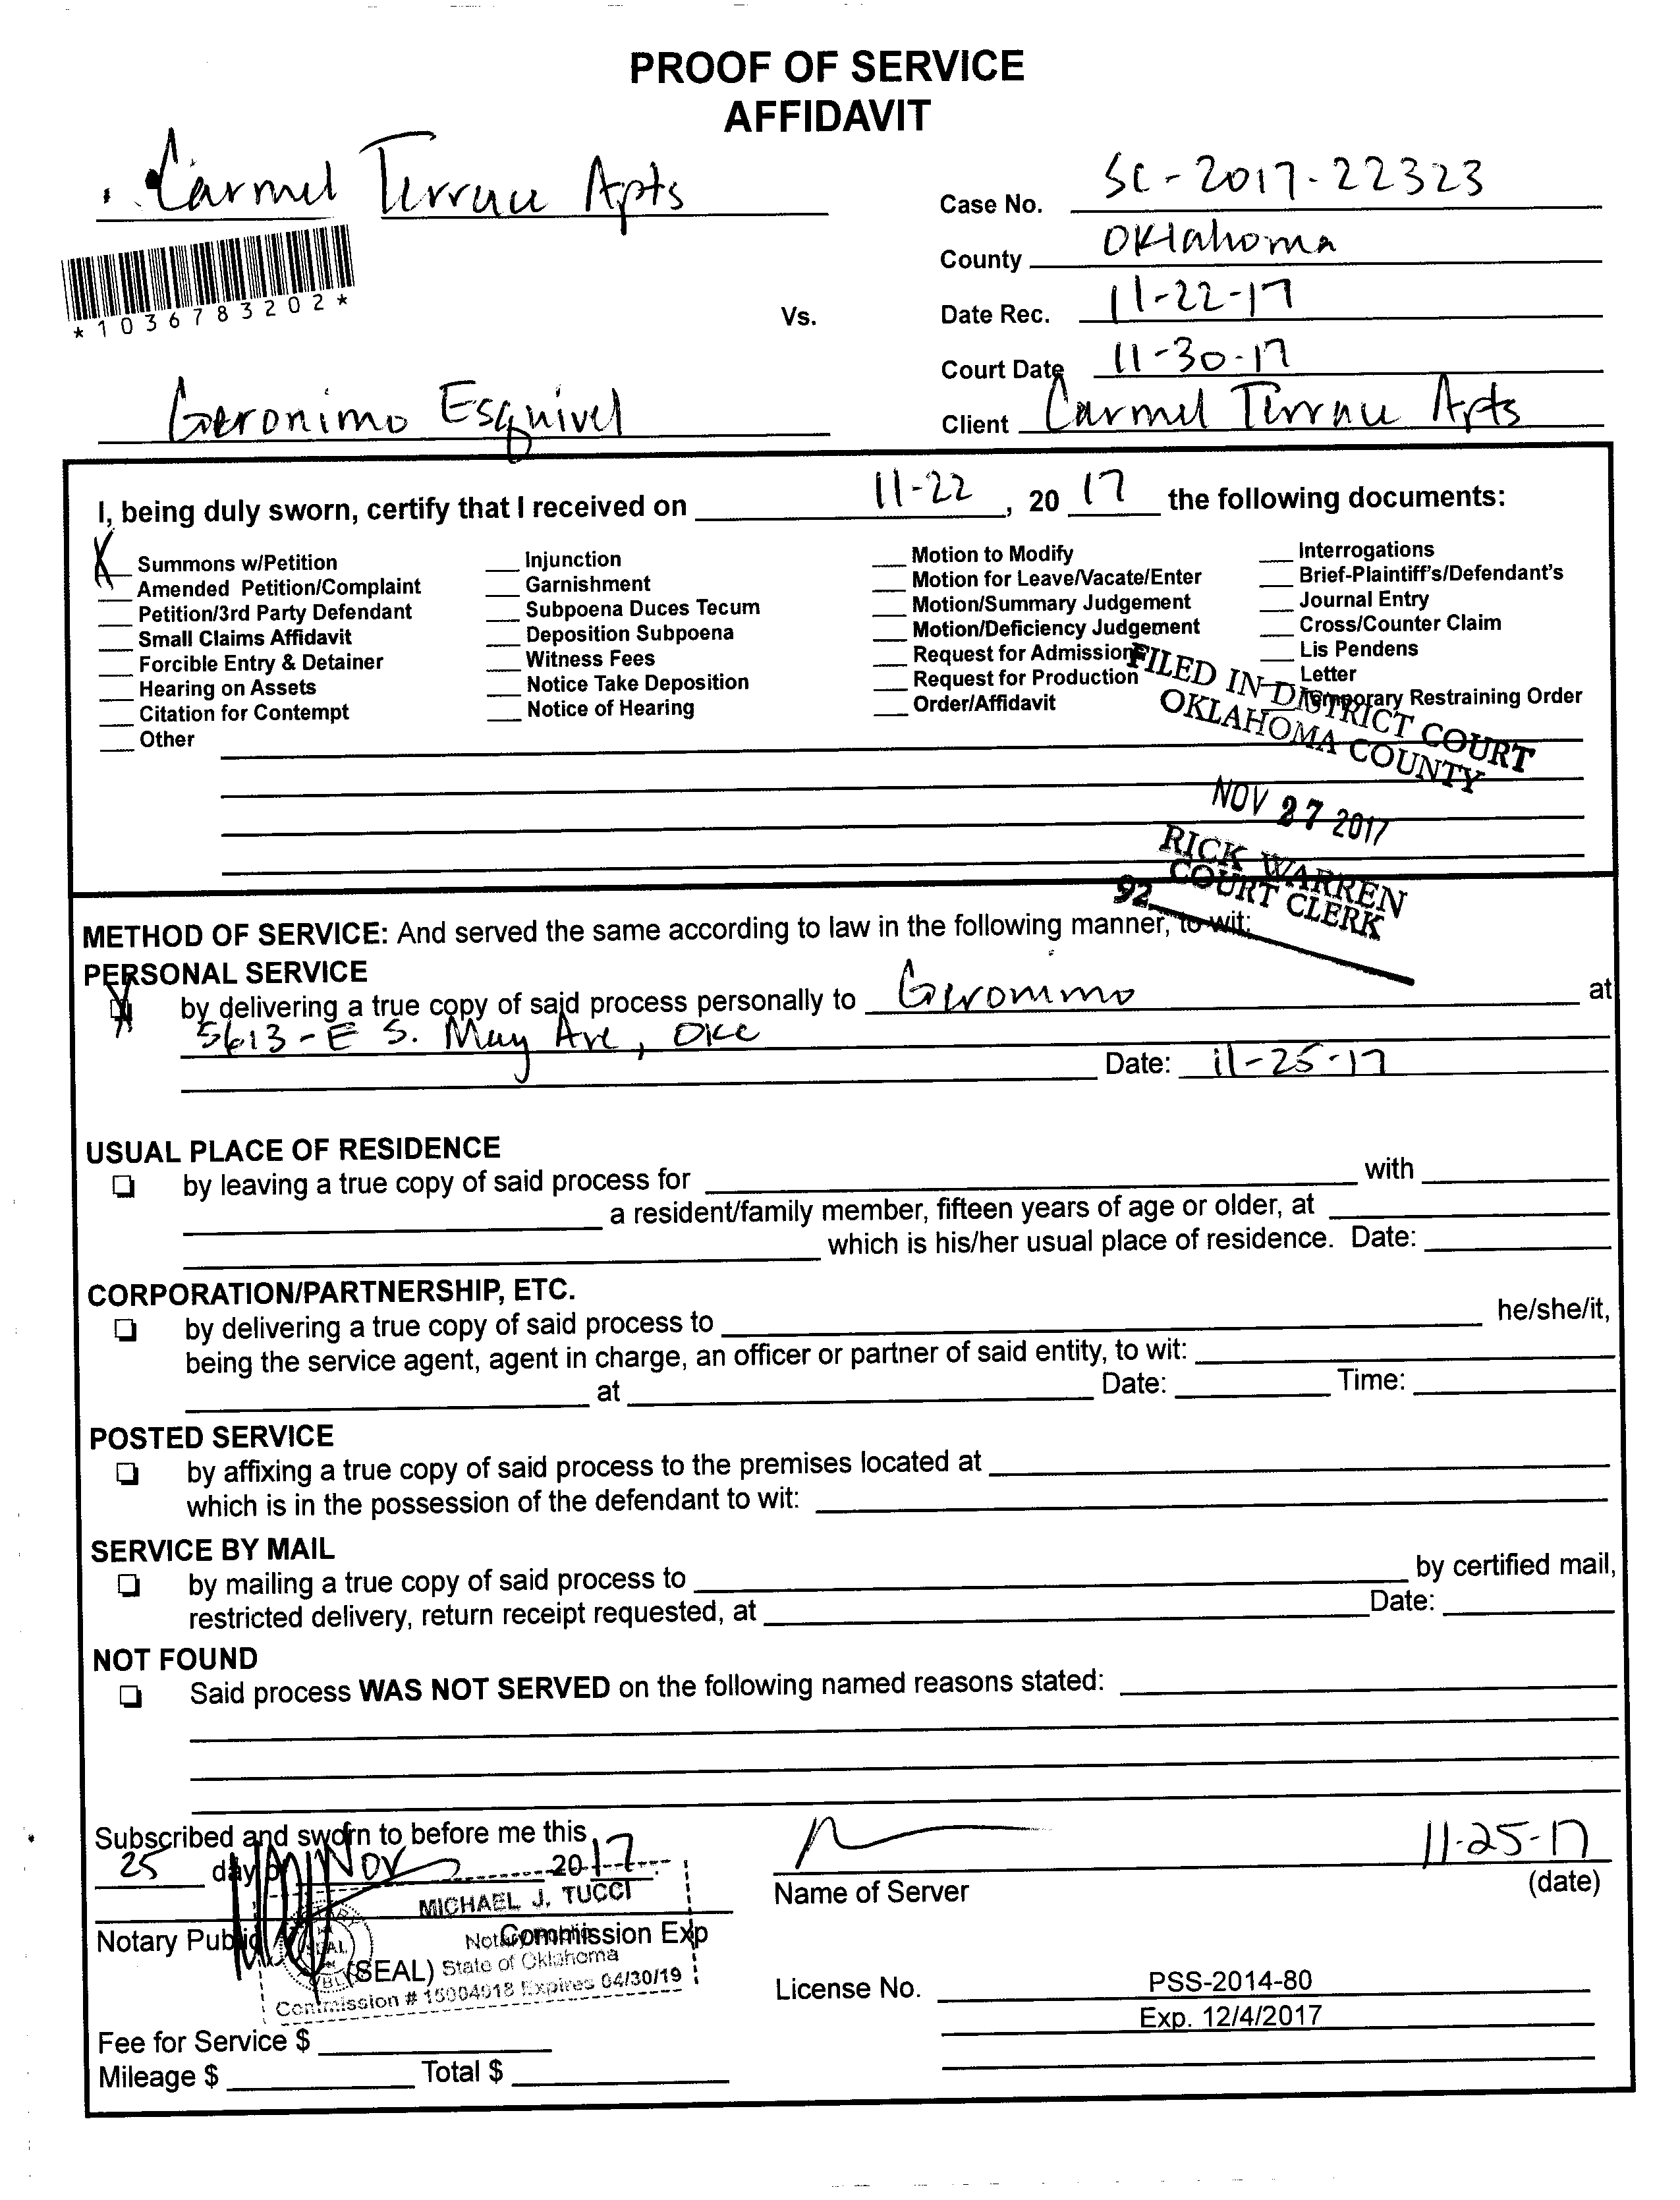 PROOF OF SERVICE
AFFIDAVIT
Carmel Terrace Apts
Case No. SC-2017-22323
County Oklahoma
*1036783202*
Vs.
Date Rec. 11-22-17
Court Date 11-30-17
Geronimo Esquivel
Client Carmel Terrace Apts
I, being duly sworn, certify that I received on 11-22, 20 17 the following documents:
X Summons w/Petition
Amended Petition/Complaint
Petition/3rd Party Defendant
Small Claims Affidavit
Forcible Entry & Detainer
Hearing on Assets
Citation for Contempt
Other
Injunction
Garnishment
Subpoena Duces Tecum
Deposition Subpoena
Witness Fees
Notice Take Deposition
Notice of Hearing
Motion to Modify
Motion for Leave/Vacate/Enter
Motion/Summary Judgement
Motion/Deficiency Judgement
Request for Admission
Request for Production
Order/Affidavit
Interrogations
Brief-Plaintiff's/Defendant's
Journal Entry
Cross/Counter Claim
Lis Pendens
Letter
Temporary Restraining Order
FILED IN DISTRICT COURT
OKLAHOMA COUNTY
NOV 27 2017
RICK WARREN
COURT CLERK
92
METHOD OF SERVICE: And served the same according to law in the following manner, to wit:
PERSONAL SERVICE
X by delivering a true copy of said process personally to Geronimo at
5613-E S. May Ave, OKC
Date: 11-25-17
USUAL PLACE OF RESIDENCE
by leaving a true copy of said process for with
a resident/family member, fifteen years of age or older, at
which is his/her usual place of residence. Date:
CORPORATION/PARTNERSHIP, ETC.
by delivering a true copy of said process to he/she/it,
being the service agent, agent in charge, an officer or partner of said entity, to wit:
at Date: Time:
POSTED SERVICE
by affixing a true copy of said process to the premises located at
which is in the possession of the defendant to wit:
SERVICE BY MAIL
by mailing a true copy of said process to by certified mail,
restricted delivery, return receipt requested, at Date:
NOT FOUND
Said process WAS NOT SERVED on the following named reasons stated:
Subscribed and sworn to before me this
25 day of Nov 2017.
11-25-17
Name of Server (date)
MICHAEL J. TUCCI
Notary Public Commission Exp
Notary Public
(SEAL) State of Oklahoma
Commission # 15004018 Expires 04/30/19
License No. PSS-2014-80
Exp. 12/4/2017
Fee for Service $
Mileage $ Total $